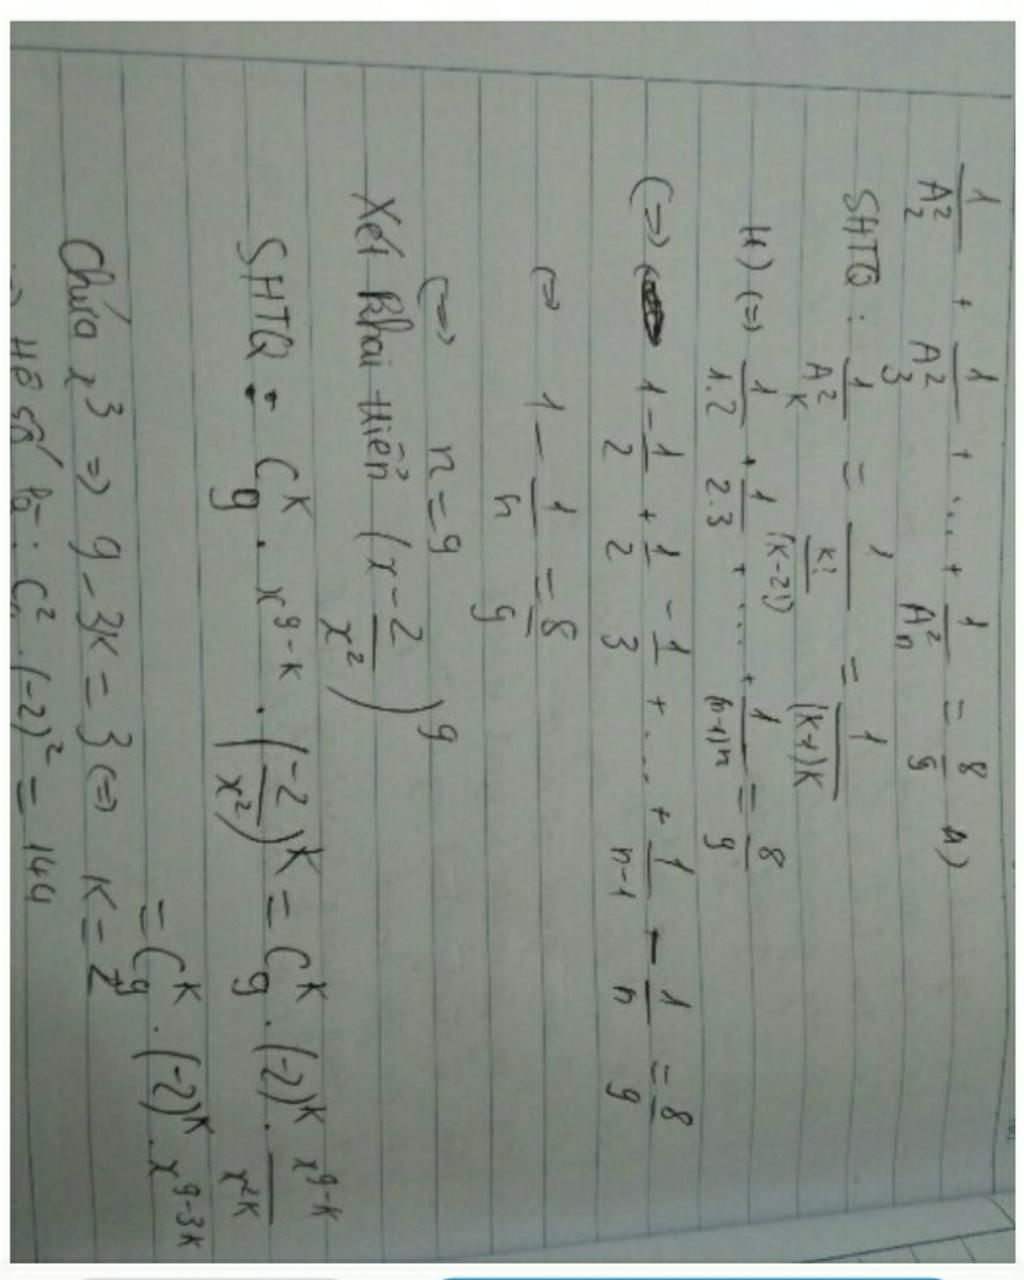 1/A₂² + 1/A₃² + ... + 1/Aₙ² = 8/9 (1)
SHTQ : 1/A_K² = 1/(K!/(K-2!)) = 1/((K-1)K)
(1) (=) 1/1.2 + 1/2.3 + ... + 1/(n-1)n = 8/9
(=) 1 - 1/2 + 1/2 - 1/3 + ... + 1/n-1 - 1/n = 8/9
(=) 1 - 1/n = 8/9
(=) n = 9
Xét khai triển (x - 2/x²)⁹
SHTQ : C₉ᴷ . x⁹⁻ᴷ . (-2/x²)ᴷ = C₉ᴷ . (-2)ᴷ . x⁹⁻ᴷ/x²ᴷ
= C₉ᴷ . (-2)ᴷ . x⁹⁻³ᴷ
Chứa x³ => 9 - 3K = 3 (=) K = 2
=> Hệ số là : C₉² . (-2)² = 144